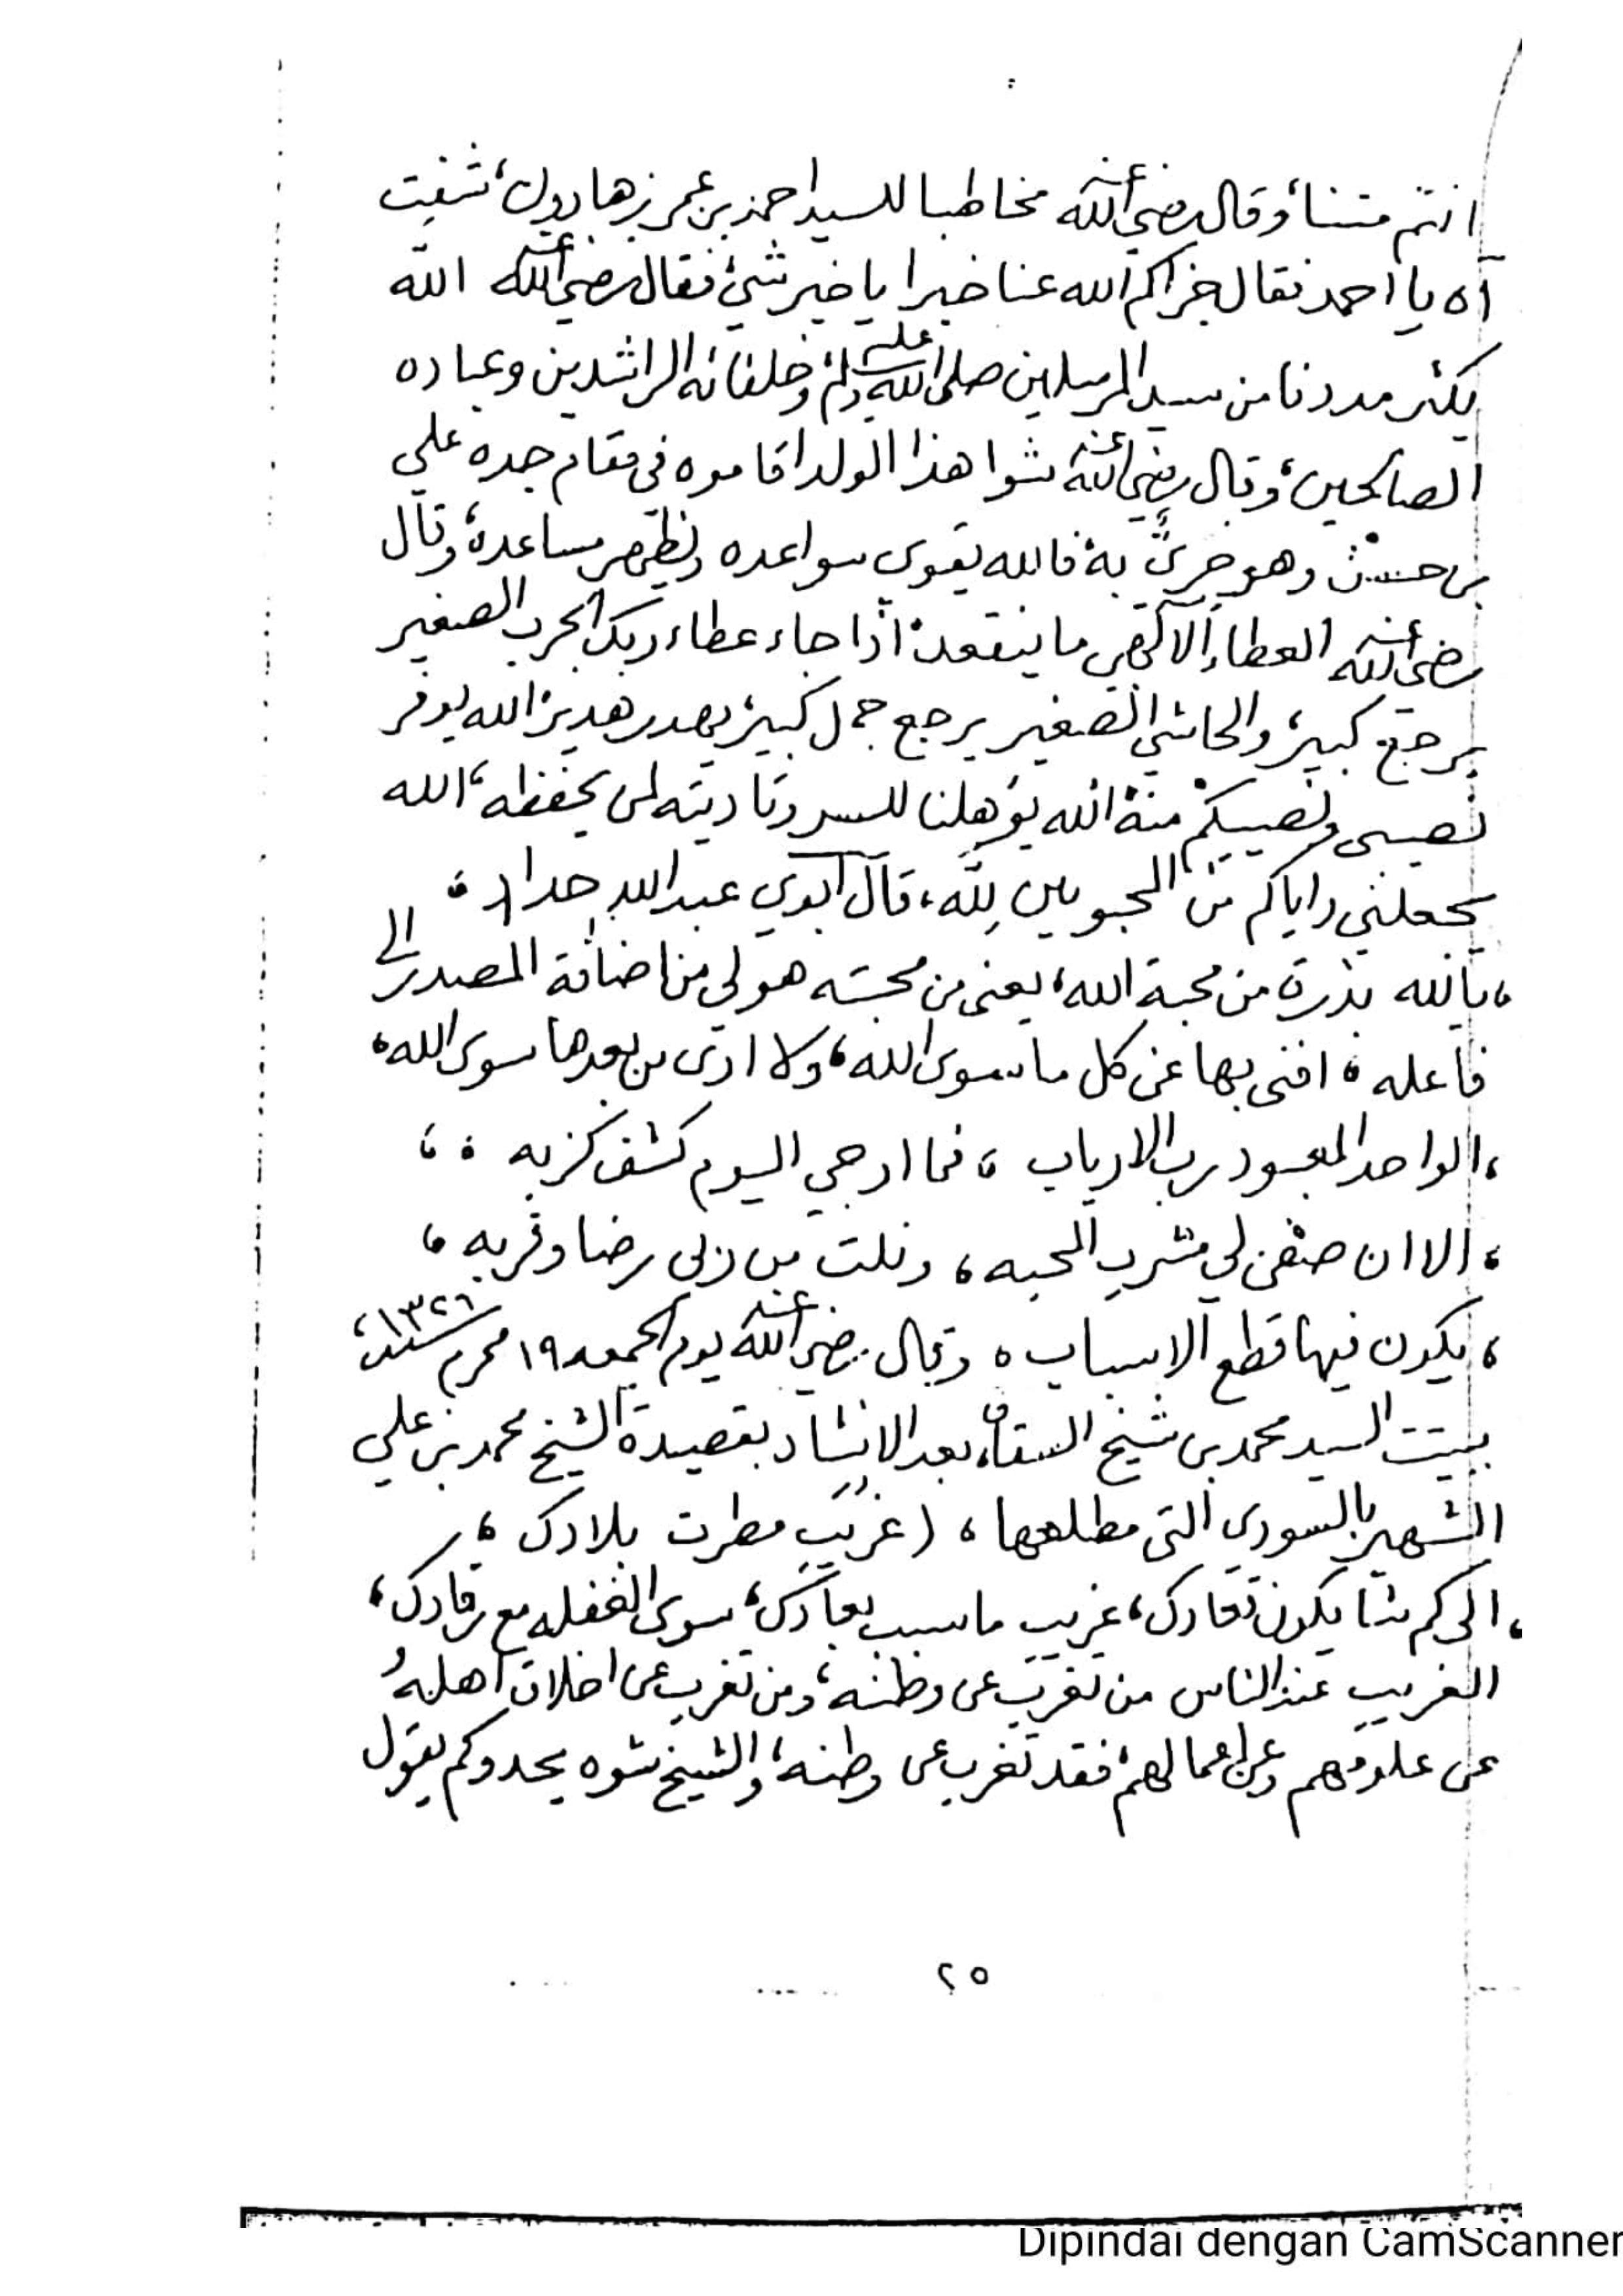 انتم متنا، وقال رضي الله عنه مخاطبا للسيد احمد بن عمر بن هارون، شفت
آه يا احمد فقال جزاكم الله عنا خيرا يا خير شيخ فقال رضي الله عنه الله
يكثر مددنا من سيد المرسلين صلى الله عليه وسلم وخلفائه الراشدين وعباده
الصالحين، وقال رضي الله عنه شوا هذا الولد اقاموه في مقام جده علي
بن حسن وهو حري به فالله يقوى سواعده ويظهر مساعده، وقال
رضي الله عنه العطاء الالهي ما ينفد، اذا جاء عطاء ربك الحرب الصغير
يرجع كبير، والحاشي الصغير يرجع جمل كبير يهدر هدير، الله يوفر
نصيبي ونصيبكم منه، الله يؤهلنا للسر وتاديته لمن يحفظه، الله
يجعلني واياكم من المحبوبين لله، قال ابوي عبد الله حداد،
، يالله بذرة من محبة الله، يعني من محبته هو لي من اضافة المصدر الى
فاعله، افنى بها عن كل ما سوى الله، ولا ارى من بعدها سوى الله،
، الواحد المعبود رب الارباب، فما ارجي اليوم كشف كربه ، ،
، الا ان صفى لي مشرب المحبه، ونلت من ربي رضا وقربه ،
، يكون فيها قطع الاسباب، وقال رضي الله عنه يوم الجمعه ١٩ محرم سنة ١٣٢٦،
ببيت السيد محمد بن شيخ السقاف، بعد الانشاد بقصيدة الشيخ محمد بن علي
الشهير بالسودى التى مطلعها، (غريب مطرت بلادك ،
، الى كم شا يكون تعادك، غريب ما سبب بعادك، سوى الغفله مع رقادك،
الغريب عند الناس من تغرب عن وطنه، ومن تغرب عن اخلاق اهله
عن علومهم وعن اعمالهم، فقد تغرب عن وطنه، والشيخ شوه يحدوكم يقول
٢٥
Dipindai dengan CamScanner